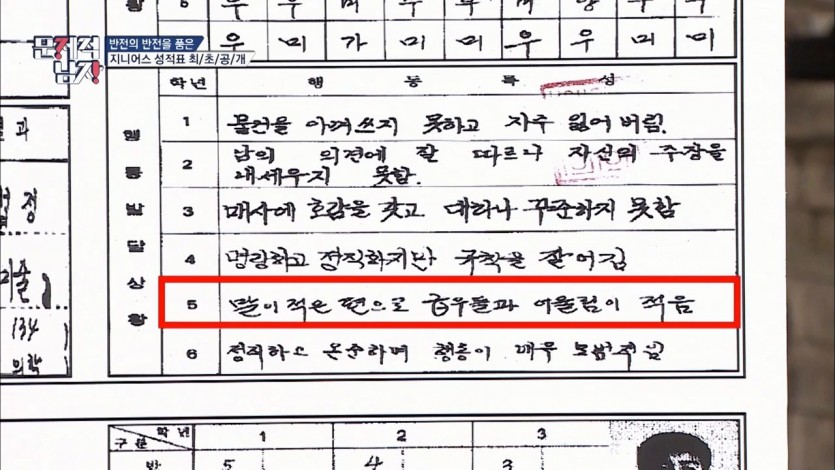 문제적
남자
반전의 반전을 품은
지니어스 성적표 최/초/공/개
우 미 가 미 미 우 우 미 미
학년 행 동 특 성
행동발달상황
1 물건을 아껴쓰지 못하고 자주 잃어버림.
2 남의 의견에 잘 따르나 자신의 주장을
내세우지 못함.
3 매사에 호감을 갖고 대하나 꾸준하지 못함
4 명랑하고 정직하지만 규칙을 잘 어김
5 말이 적은 편으로 급우들과 어울림이 적음
6 정직하고 온순하며 행동이 매우 모범적임
구분 학년 1 2 3
반 5 4 3
결과
134
의학